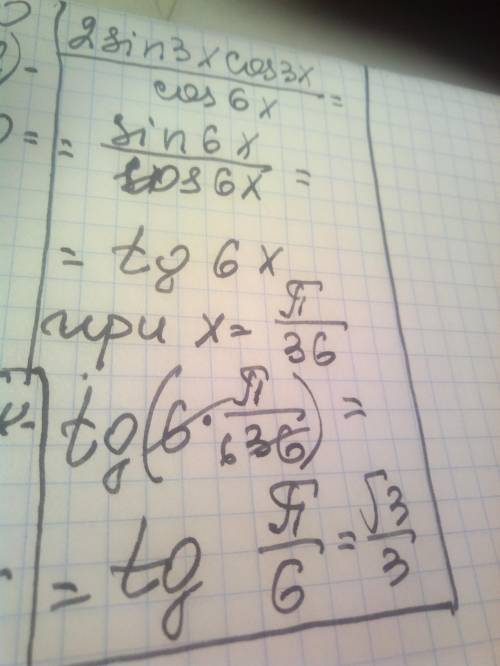 2 sin3x cos3x
cos 6x =
= sin 6x
cos 6x =
= tg 6x
при x = π/36
tg(6 · π/6 36) =
= tg π/6 = √3/3